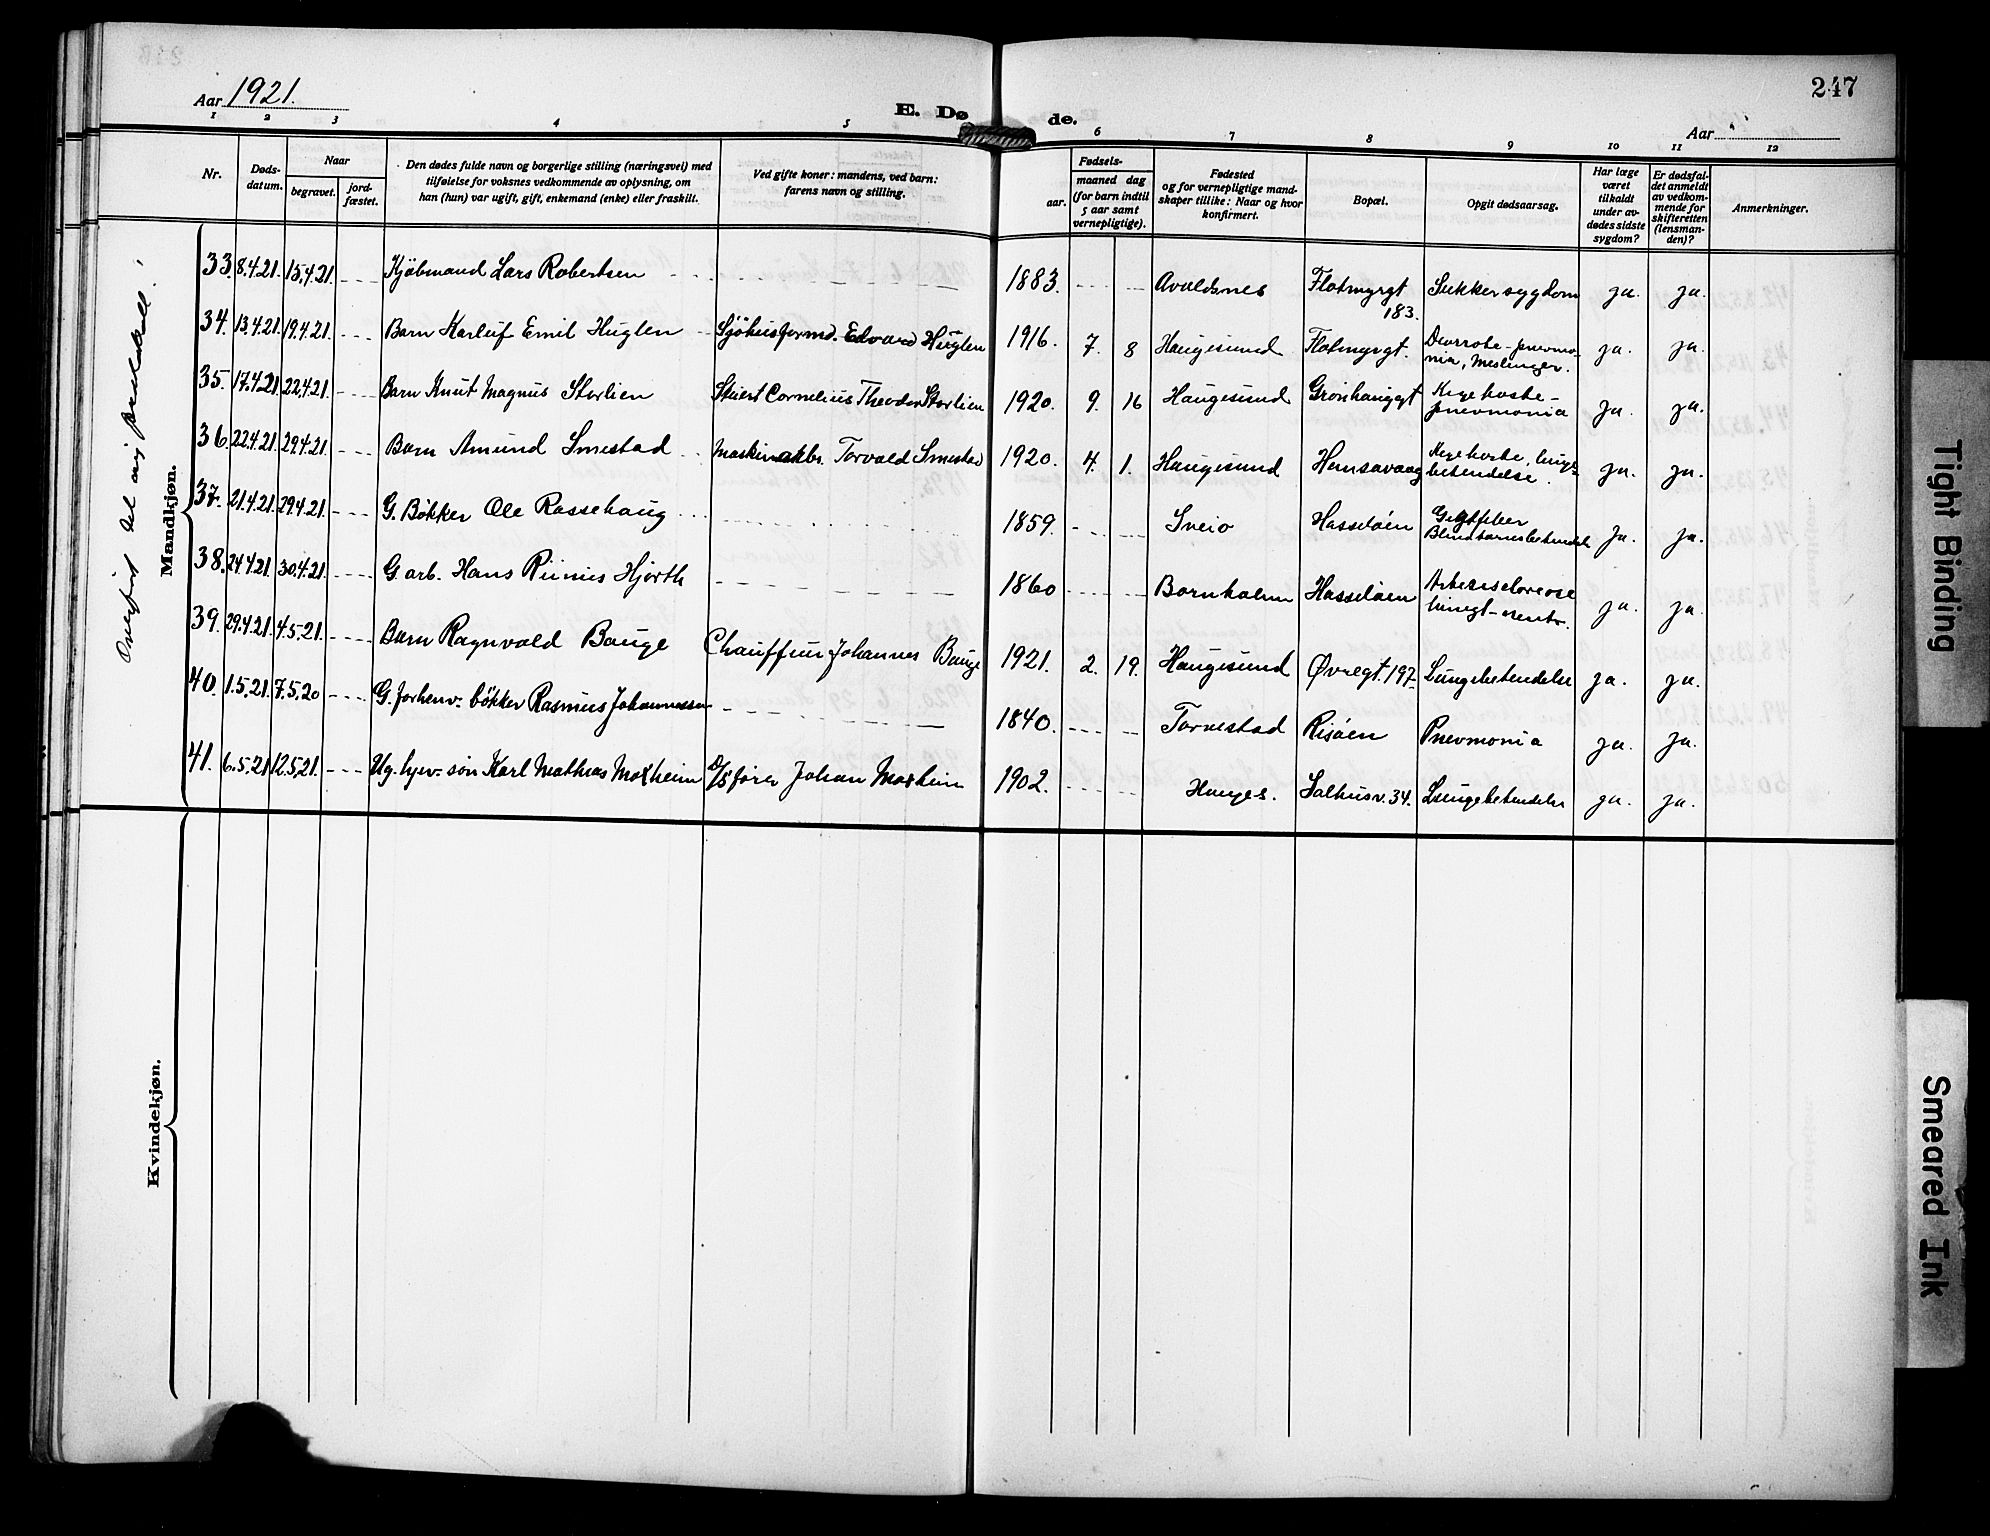 247
Aar 1921.
E. Døde.
Aar
1 2 3 4 5 6 7 8 9 10 11 12
Nr.
Døds-
datum.
Naar
begravet.
jord-
fæstet.
Den dødes fulde navn og borgerlige stilling (næringsvei) med
tilføielse for voksnes vedkommende av oplysning, om
han (hun) var ugift, gift, enkemand (enke) eller fraskilt.
Ved gifte koner: mandens, ved barn:
farens navn og stilling.
Fødsels-
aar.
maaned dag
(for barn indtil
5 aar samt
vernepligtige).
Fødested
og for vernepligtige mand-
skaper tillike: Naar og hvor
konfirmert.
Bopæl.
Opgit dødsaarsag.
Har læge
været
tilkaldt
under av-
dødes sidste
sygdom?
Er dødsfal-
det anmeldt
av vedkom-
mende for
skifteretten
(lensman-
den)?
Anmerkninger.
Overført til ny protokoll!
Mandkjøn.
33. 8.4.21. 15.4.21. Kjøbmand Lars Robertsen 1883. Avaldsnes Flotmyrgt 183. Sukkersygdom ja. ja.
34. 13.4.21. 19.4.21. Barn Karluf Emil Huglen Sjøhusformd. Edvard Huglen 1916. 7. 8 Haugesund Flotmyrgt. pnevmo-
nia, Meslinger. ja. ja.
35. 17.4.21 22.4.21 Barn Knut Magnus Storlien Stuert Cornelius Theodor Storlien 1920. 9. 16 Haugesund Grønhauggt Kighoste-
pnevmonia ja. ja.
36. 22.4.21. 29.4.21. Barn Amund Smestad Maskinarbr. Torvald Smestad 1920. 4. 1. Haugesund Hemsavaag Kighoste, lunge-
betendelse. ja. ja.
37. 21.4.21 29.4.21. G. Bøkker Ole Rassehaug 1859. Sveio Hasseløen Gigtfeber
Blindtarmsbetendelse ja. ja.
38. 24.4.21. 30.4.21. G. arb. Hans Hjorth 1860 Bornholm Hasseløen ja. ja.
39. 29.4.21. 4.5.21. Barn Ragnvald Bauge Chauffeur Johannes Bauge 1921. 2. 19. Haugesund Øvregt. 197 Lungebetendelse ja. ja.
40. 1.5.21. 7.5.20 G. forhenv. bøkker Rasmus Johannessen 1840. Torvestad Risøen Pnevmonia ja. ja.
41. 6.5.21 12.5.21. Ug. hjev. søn Karl Mathias Moxheim D/S fører Johan Moxheim 1902. Hauges. Salhusv. 34. Lungebetendelse ja. ja.
Kvindekjøn.
Tight Binding
Smeared Ink